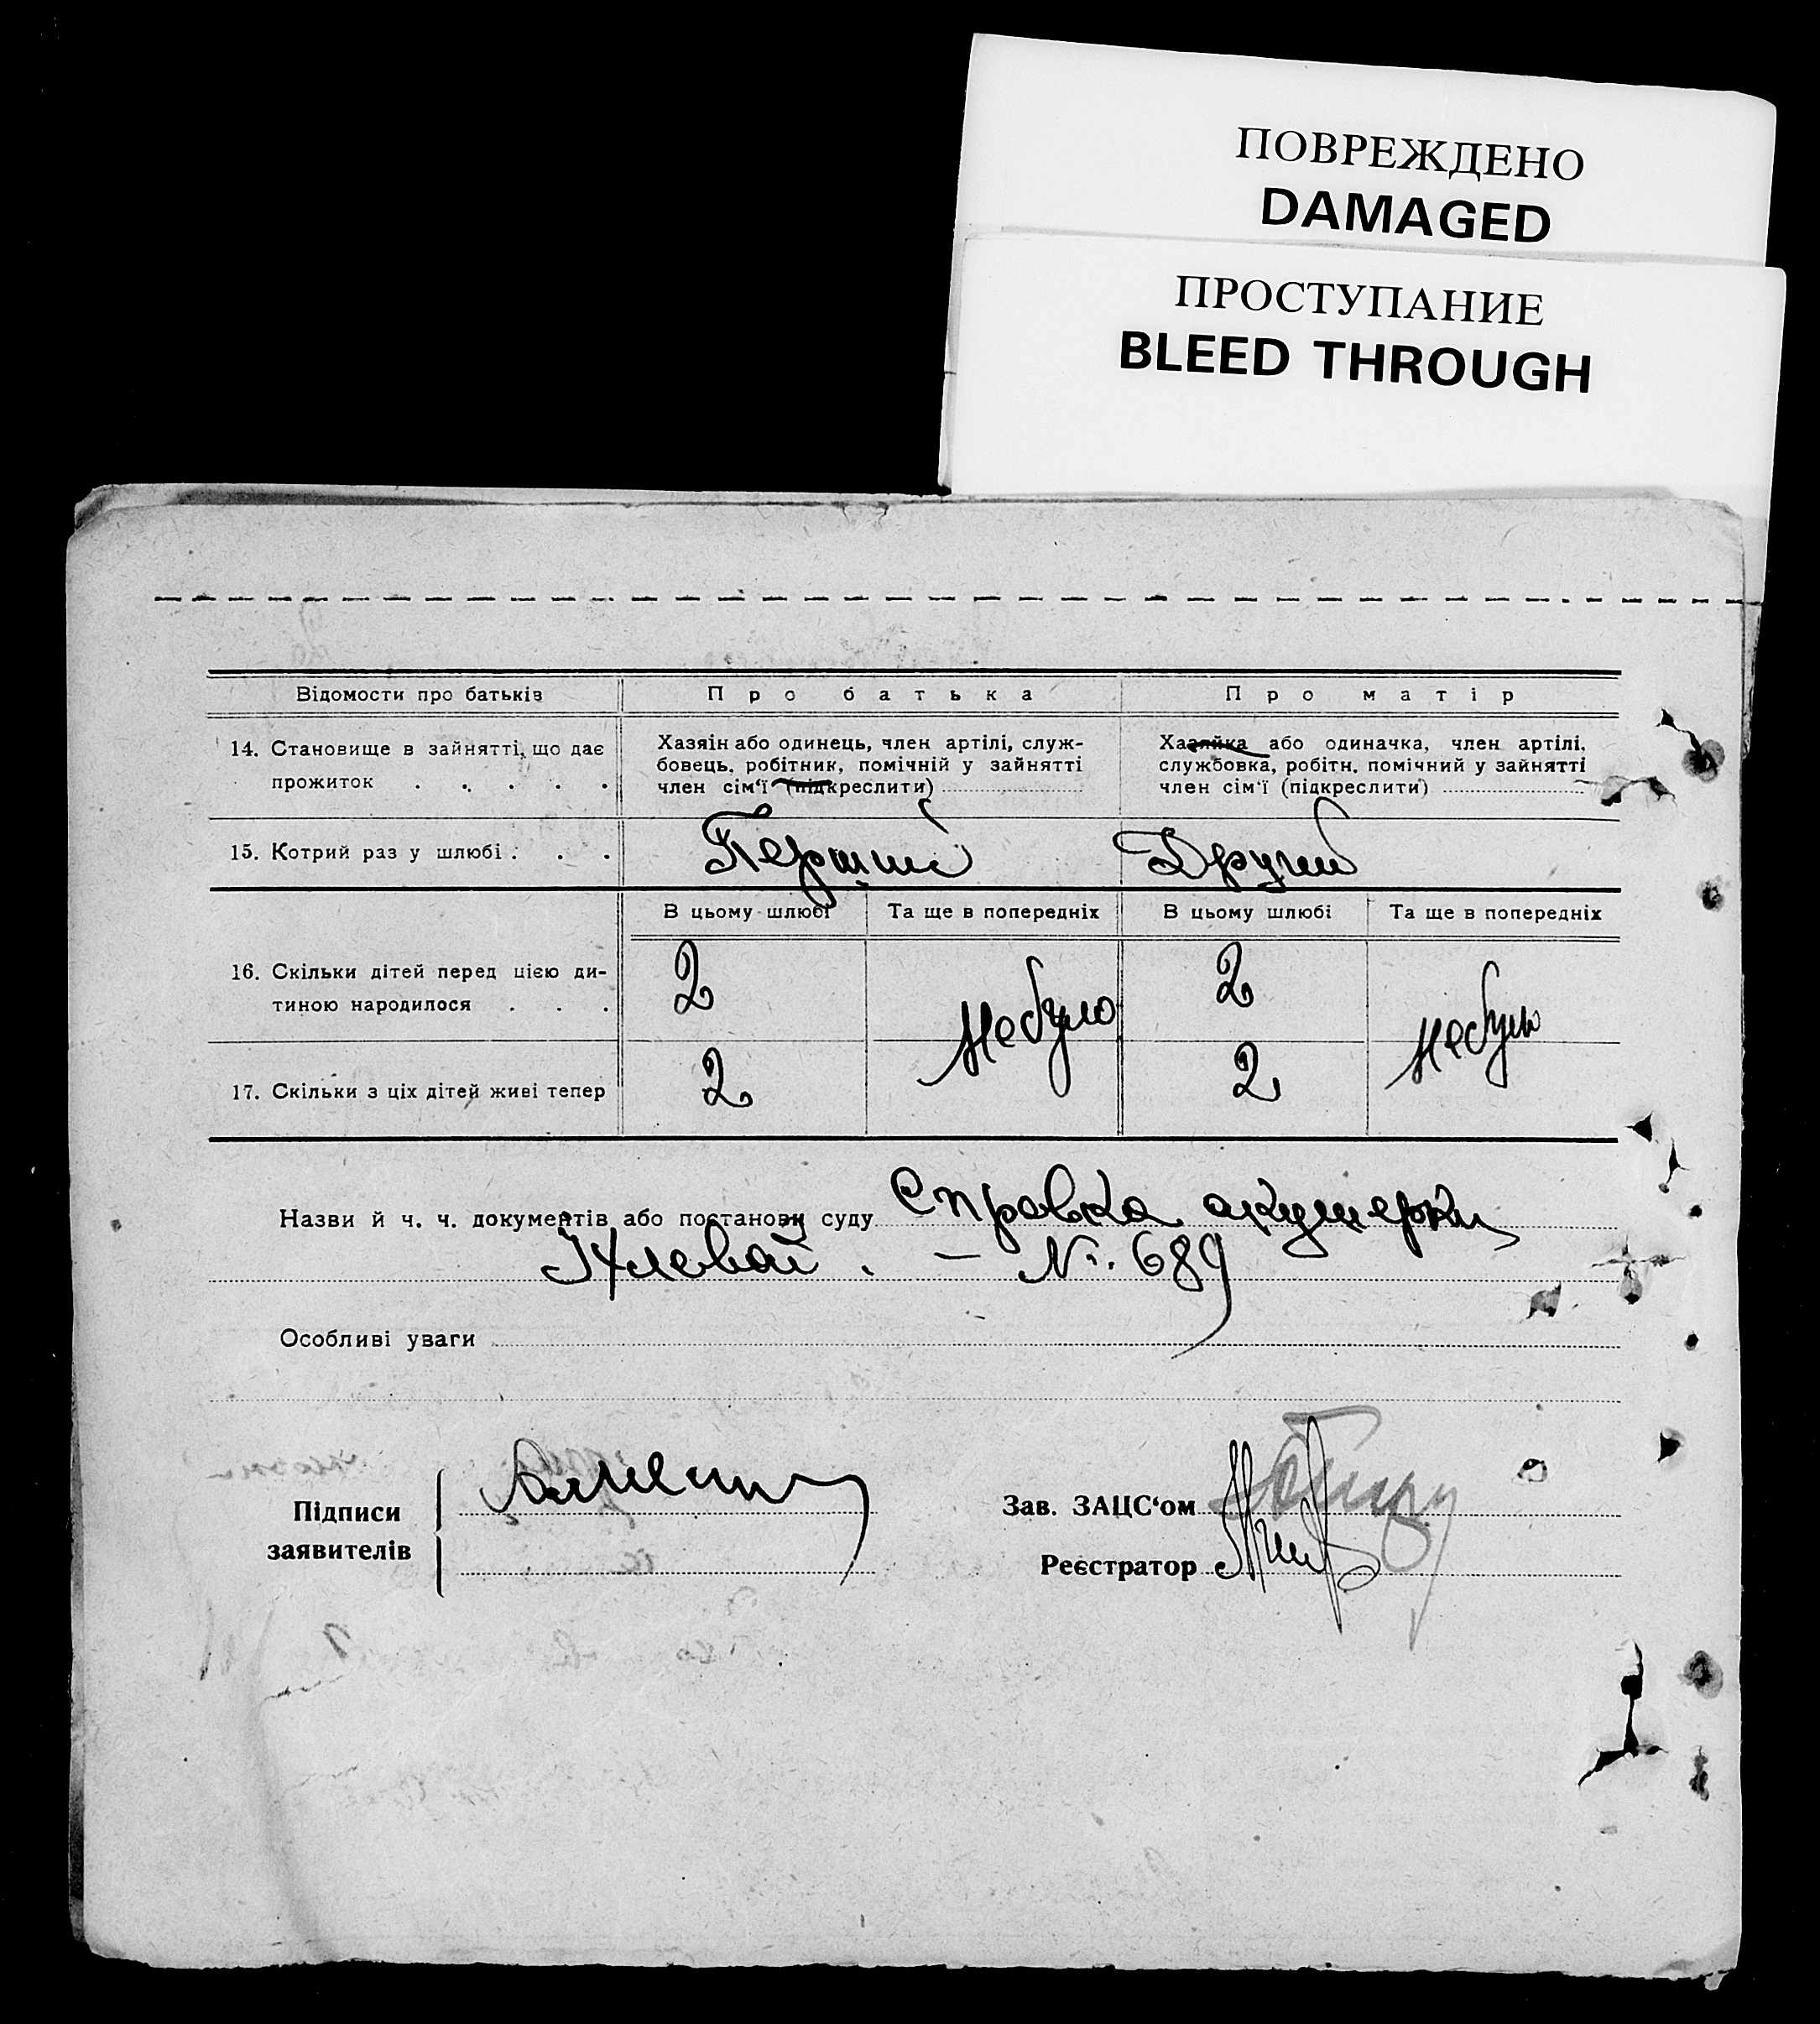 ПОВРЕЖДЕНО
DAMAGED
ПРОСТУПАНИЕ
BLEED THROUGH
Відомости про батьків
Про батька
Про матір
14. Становище в зайнятті, що дає
прожиток . . . . .
Хазяїн або одинець, член артілі, служ-
бовець, робітник, помічній у зайнятті
член сім'ї (підкреслити)
Хазяйка або одиначка, член артілі,
службовка, робітн. помічний у зайнятті
член сім'ї (підкреслити)
15. Котрий раз у шлюбі . . .
Перший
Другий
В цьому шлюбі
Та ще в попередніх
В цьому шлюбі
Та ще в попередніх
16. Скільки дітей перед цією ди-
тиною народилося . . .
2
Не було
2
Не було
17. Скільки з ціх дітей живі тепер
2
2
Назви й ч. ч. документів або постанови суду Справка акушерки
— №. 689
Особливі уваги
Підписи
заявителів
Зав. ЗАЦС'ом
Реєстратор